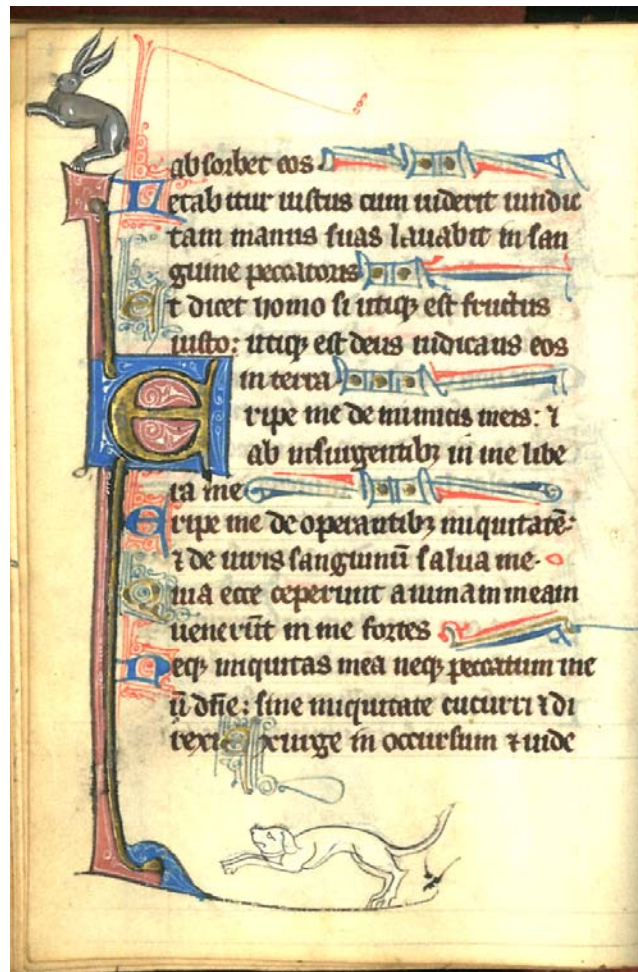 absorbet eos
Letabitur iustus cum uiderit uindic
tam manus suas lauabit in san
guine peccatoris
Et dicet homo si utiqꝫ est fructus
iusto: utiqꝫ est deus iudicans eos
in terra
Eripe me de inimicis meis: ⁊
ab insurgentibꝫ in me libe
ra me
Eripe me de operantibꝫ iniquitatē:
⁊ de uiris sanguinū salua me.
Quia ecce ceperunt animam meam
uenerūt in me fortes
Neqꝫ iniquitas mea neqꝫ peccatum me
ū dñe: sine iniquitate cucurri ⁊ di
rexi Exurge in occursum ⁊ uide